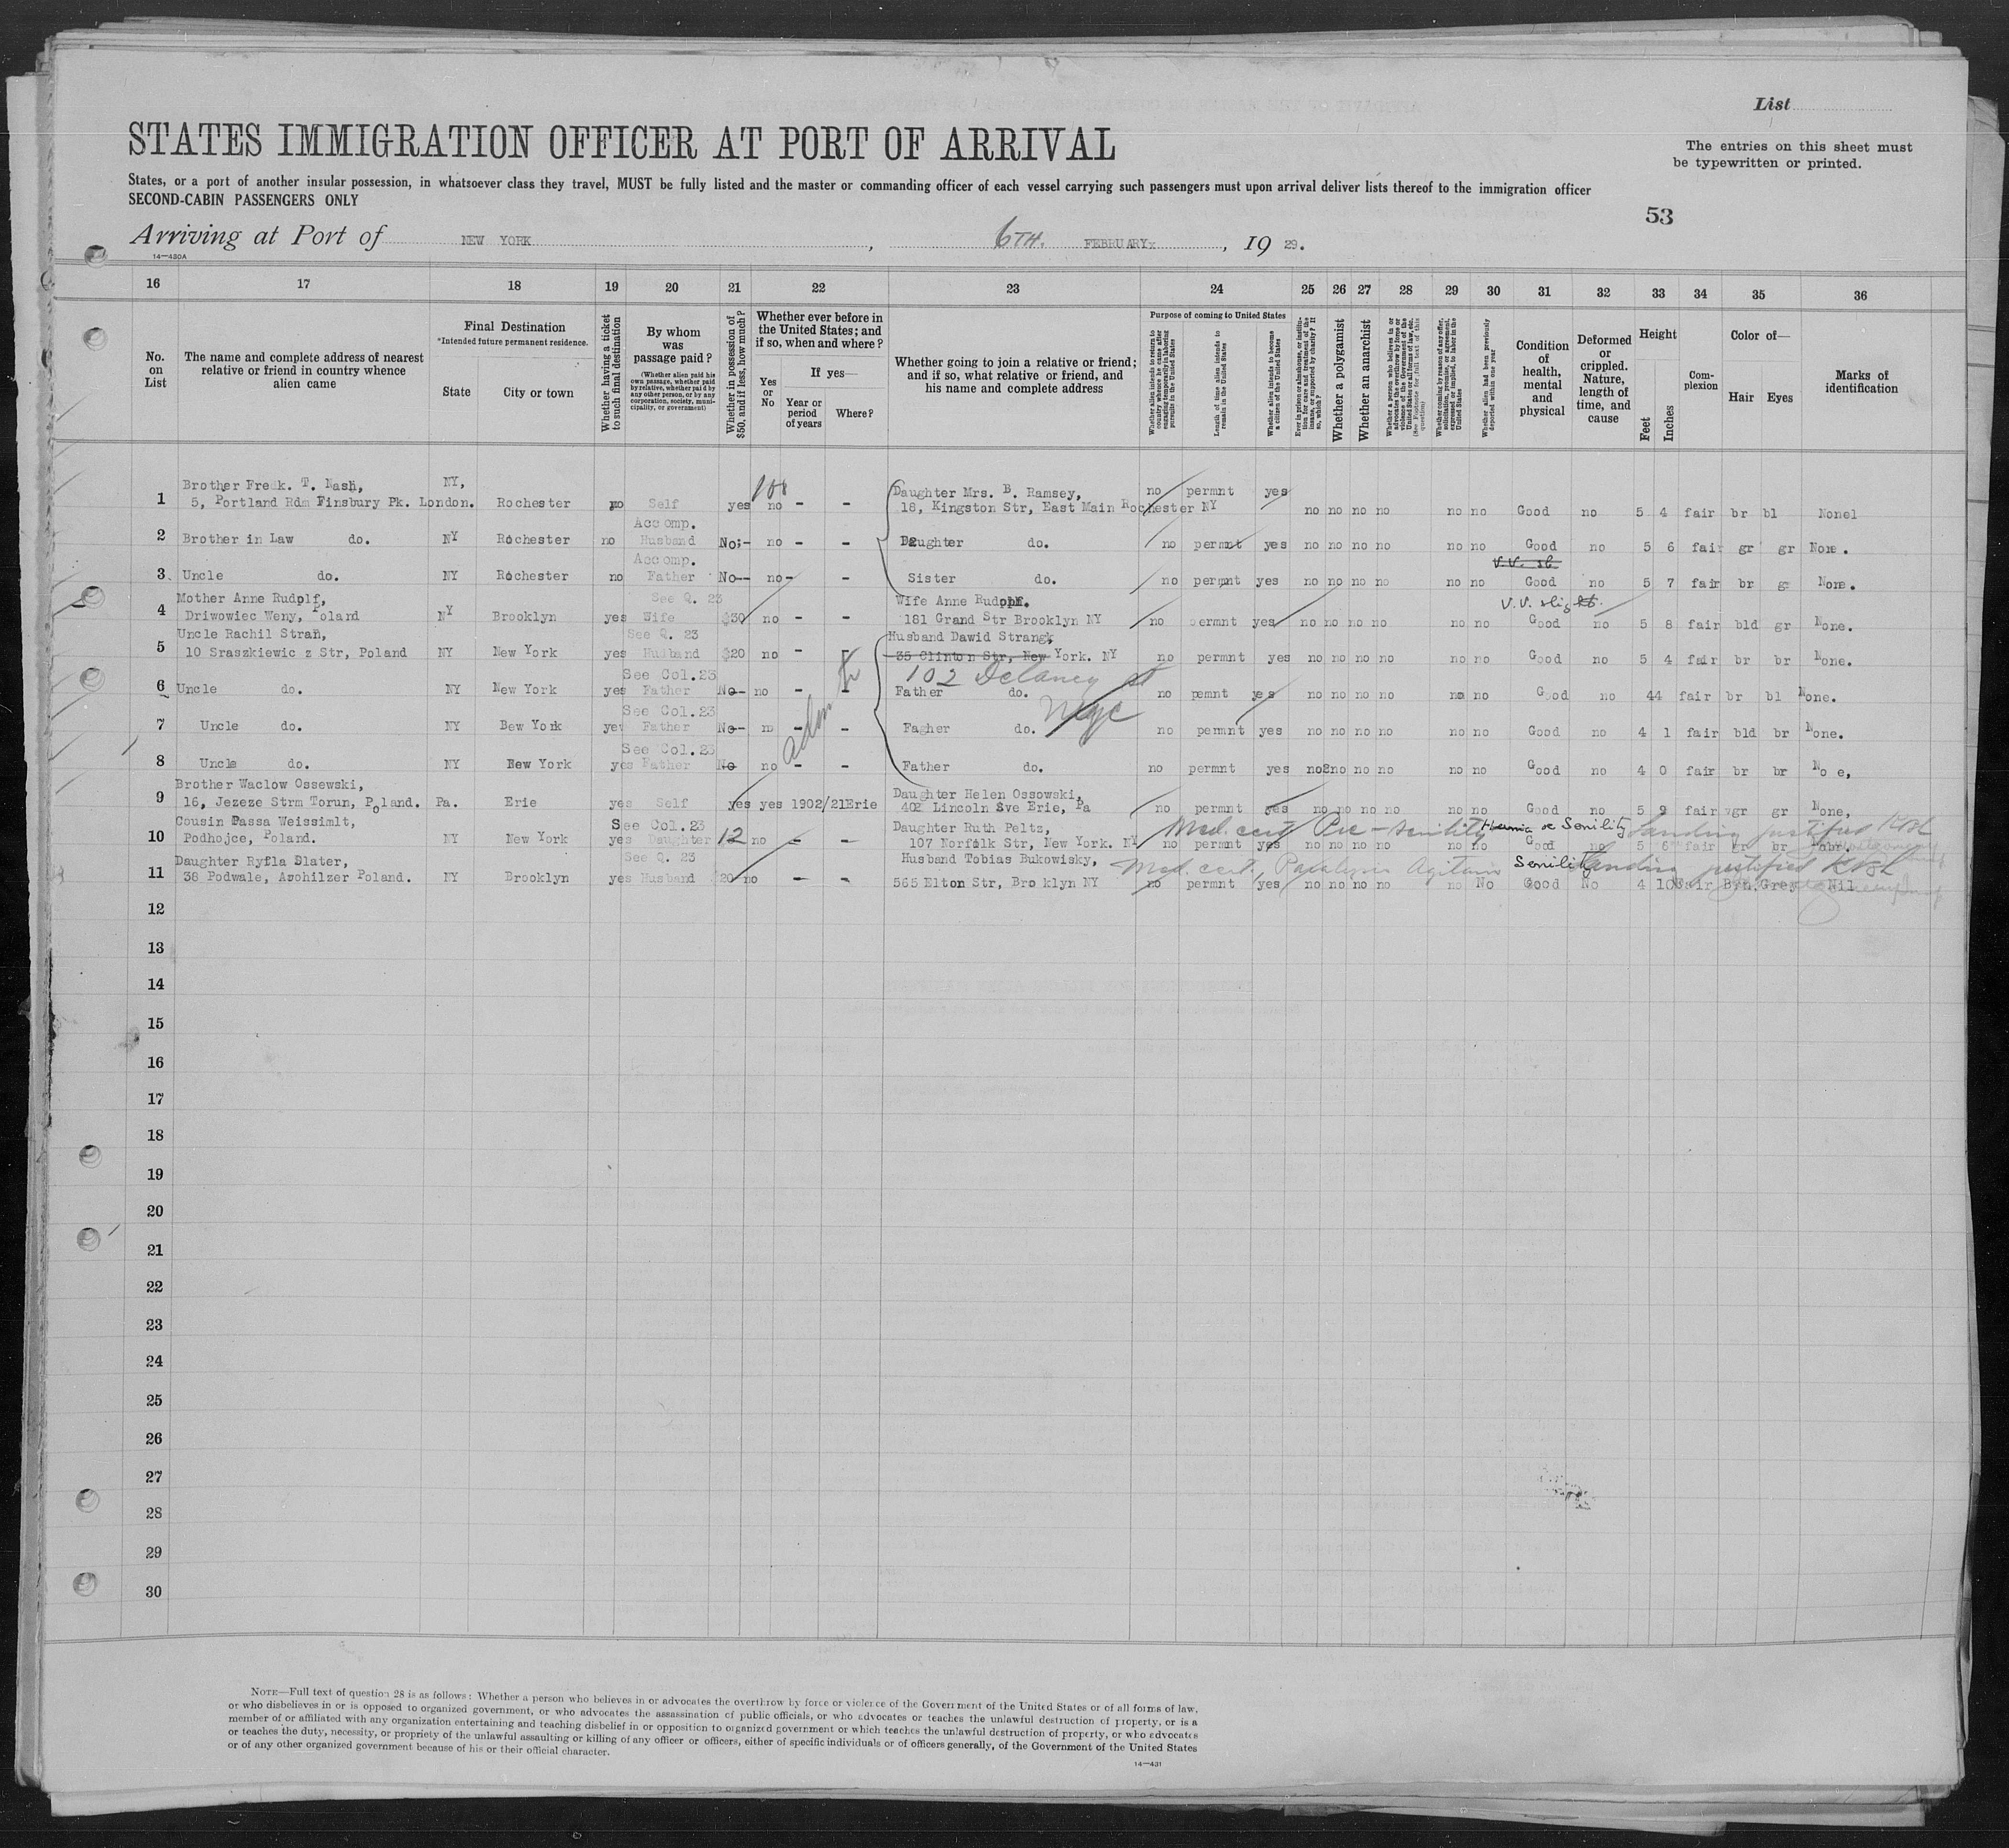 List
STATES IMMIGRATION OFFICER AT PORT OF ARRIVAL
The entries on this sheet must
be typewritten or printed.
States, or a port of another insular possession, in whatsoever class they travel, MUST be fully listed and the master or commanding officer of each vessel carrying such passengers must upon arrival deliver lists thereof to the immigration officer
SECOND-CABIN PASSENGERS ONLY
53
Arriving at Port of NEW YORK, 6TH. FEBRUARYx, 19 29.
14—430A
16 17 18 19 20 21 22 23 24 25 26 27 28 29 30 31 32 33 34 35 36
No. on List
The name and complete address of nearest relative or friend in country whence alien came
Final Destination
*Intended future permanent residence.
State
City or town
Whether having a ticket to such final destination
By whom was passage paid?
(Whether alien paid his own passage, whether paid by relative, whether paid by any other person, or by any corporation, society, municipality, or government)
Whether in possession of $50, and if less, how much?
Whether ever before in the United States; and if so, when and where?
Yes or No
If yes—
Year or period of years
Where?
Whether going to join a relative or friend; and if so, what relative or friend, and his name and complete address
Purpose of coming to United States
Whether alien intends to return to country whence he came after engaging temporarily in laboring pursuits in the United States
Length of time alien intends to remain in the United States
Whether alien intends to become a citizen of the United States
Ever in prison or almshouse, or institution for care and treatment of the insane, or supported by charity? If so, which?
Whether a polygamist
Whether an anarchist
Whether a person who believes in or advocates the overthrow by force or violence of the Government of the United States or all forms of law, etc. (See Footnote for full text of this question)
Whether coming by reason of any offer, solicitation, promise, or agreement, expressed or implied, to labor in the United States
Whether alien had been previously deported within one year
Condition of health, mental and physical
Deformed or crippled. Nature, length of time, and cause
Height
Feet
Inches
Complexion
Color of—
Hair
Eyes
Marks of identification
Brother Fredk. T. Nash, NY, 100 Daughter Mrs. B. Ramsey, no permnt yes
1 5, Portland Rdm Finsbury Pk. London. Rochester no Self yes no - - 18, Kingston Str, East Main Rochester NY no no no no no no Good no 5 4 fair br bl Nonel
Accomp.
2 Brother in Law do. NY Rochester no Husband No:- no - - Daughter do. no permnt yes no no no no no no Good no 5 6 fair gr gr None.
Accomp. V.V. sl
3 Uncle do. NY Rochester no Father No-- no- - Sister do. no permnt yes no no no no no no Good no 5 7 fair br gr None.
Mother Anne Rudolf, See Q. 23 Wife Anne Rudolf. V.V. slight.
4 Driwowiec Weny, Poland NY Brooklyn yes Wife $30 no - - 181 Grand Str Brooklyn NY no permnt yes no no no no no no Good no 5 8 fair bld gr None.
Uncle Rachil Stran, See Q. 23 Husband Dawid Strang,
5 10 Sraszkiewic z Str, Poland NY New York yes Husband $20 no - - 35 Clinton Str, New York. NY no permnt yes no no no no no no Good no 5 4 fair br br None.
See Col.23 102 Delancy St
6 Uncle do. NY New York yes Father No- no - - Father do. no pemnt yes no no no no no no Good no 44 fair br bl None.
See Col.23 NYC
7 Uncle do. NY Bew York yes Father No- no - - Fagher do. no permnt yes no no no no no no Good no 4 1 fair bld br None.
See Col.23
8 Uncle do. NY New York yes Father No no - - Father do. no permnt yes no2no no no no no Good no 4 0 fair br br No e,
Brother Waclow Ossewski, Daughter Helen Ossowski,
9 16, Jezeze Strm Torun, Poland. Pa. Erie yes Self yes yes 1902/21Erie 402 Lincoln Sve Erie, Pa no permnt yes no no no no no no Good no 5 9 fair gr gr None,
Cousin Passa Weissimlt, See Col.23 Daughter Ruth Peltz, Med. cert Pre-senility Hernia & Senility Landing justified
10 Podhojce, Poland. NY New York yes Daughter 12 no - - 107 Norfolk Str, New York. NY no permnt yes no no no no no no Good no 5 6 fair gr gr
Daughter Ryfla Slater, See Q. 23 Husband Tobias Bukowisky, Med. cert. Paralysis Agitans Senility Landing justified
11 38 Podwale, Azohilzer Poland. NY Brooklyn yes Husband 20 no - - 565 Elton Str, Bro klyn NY no permnt yes no no no no no No Good No 4 10 Fair Brn. Grey Nil
12
13
14
15
16
17
18
19
20
21
22
23
24
25
26
27
28
29
30
NOTE—Full text of question 28 is as follows: Whether a person who believes in or advocates the overthrow by force or violence of the Government of the United States or of all forms of law,
or who disbelieves in or is opposed to organized government, or who advocates the assassination of public officials, or who advocates or teaches the unlawful destruction of property, or is a
member of or affiliated with any organization entertaining and teaching disbelief in or opposition to organized government or which teaches the unlawful destruction of property, or who advocates
or teaches the duty, necessity, or propriety of the unlawful assaulting or killing of any officer or officers, either of specific individuals or of officers generally, of the Government of the United States
or of any other organized government because of his or their official character.
14—431